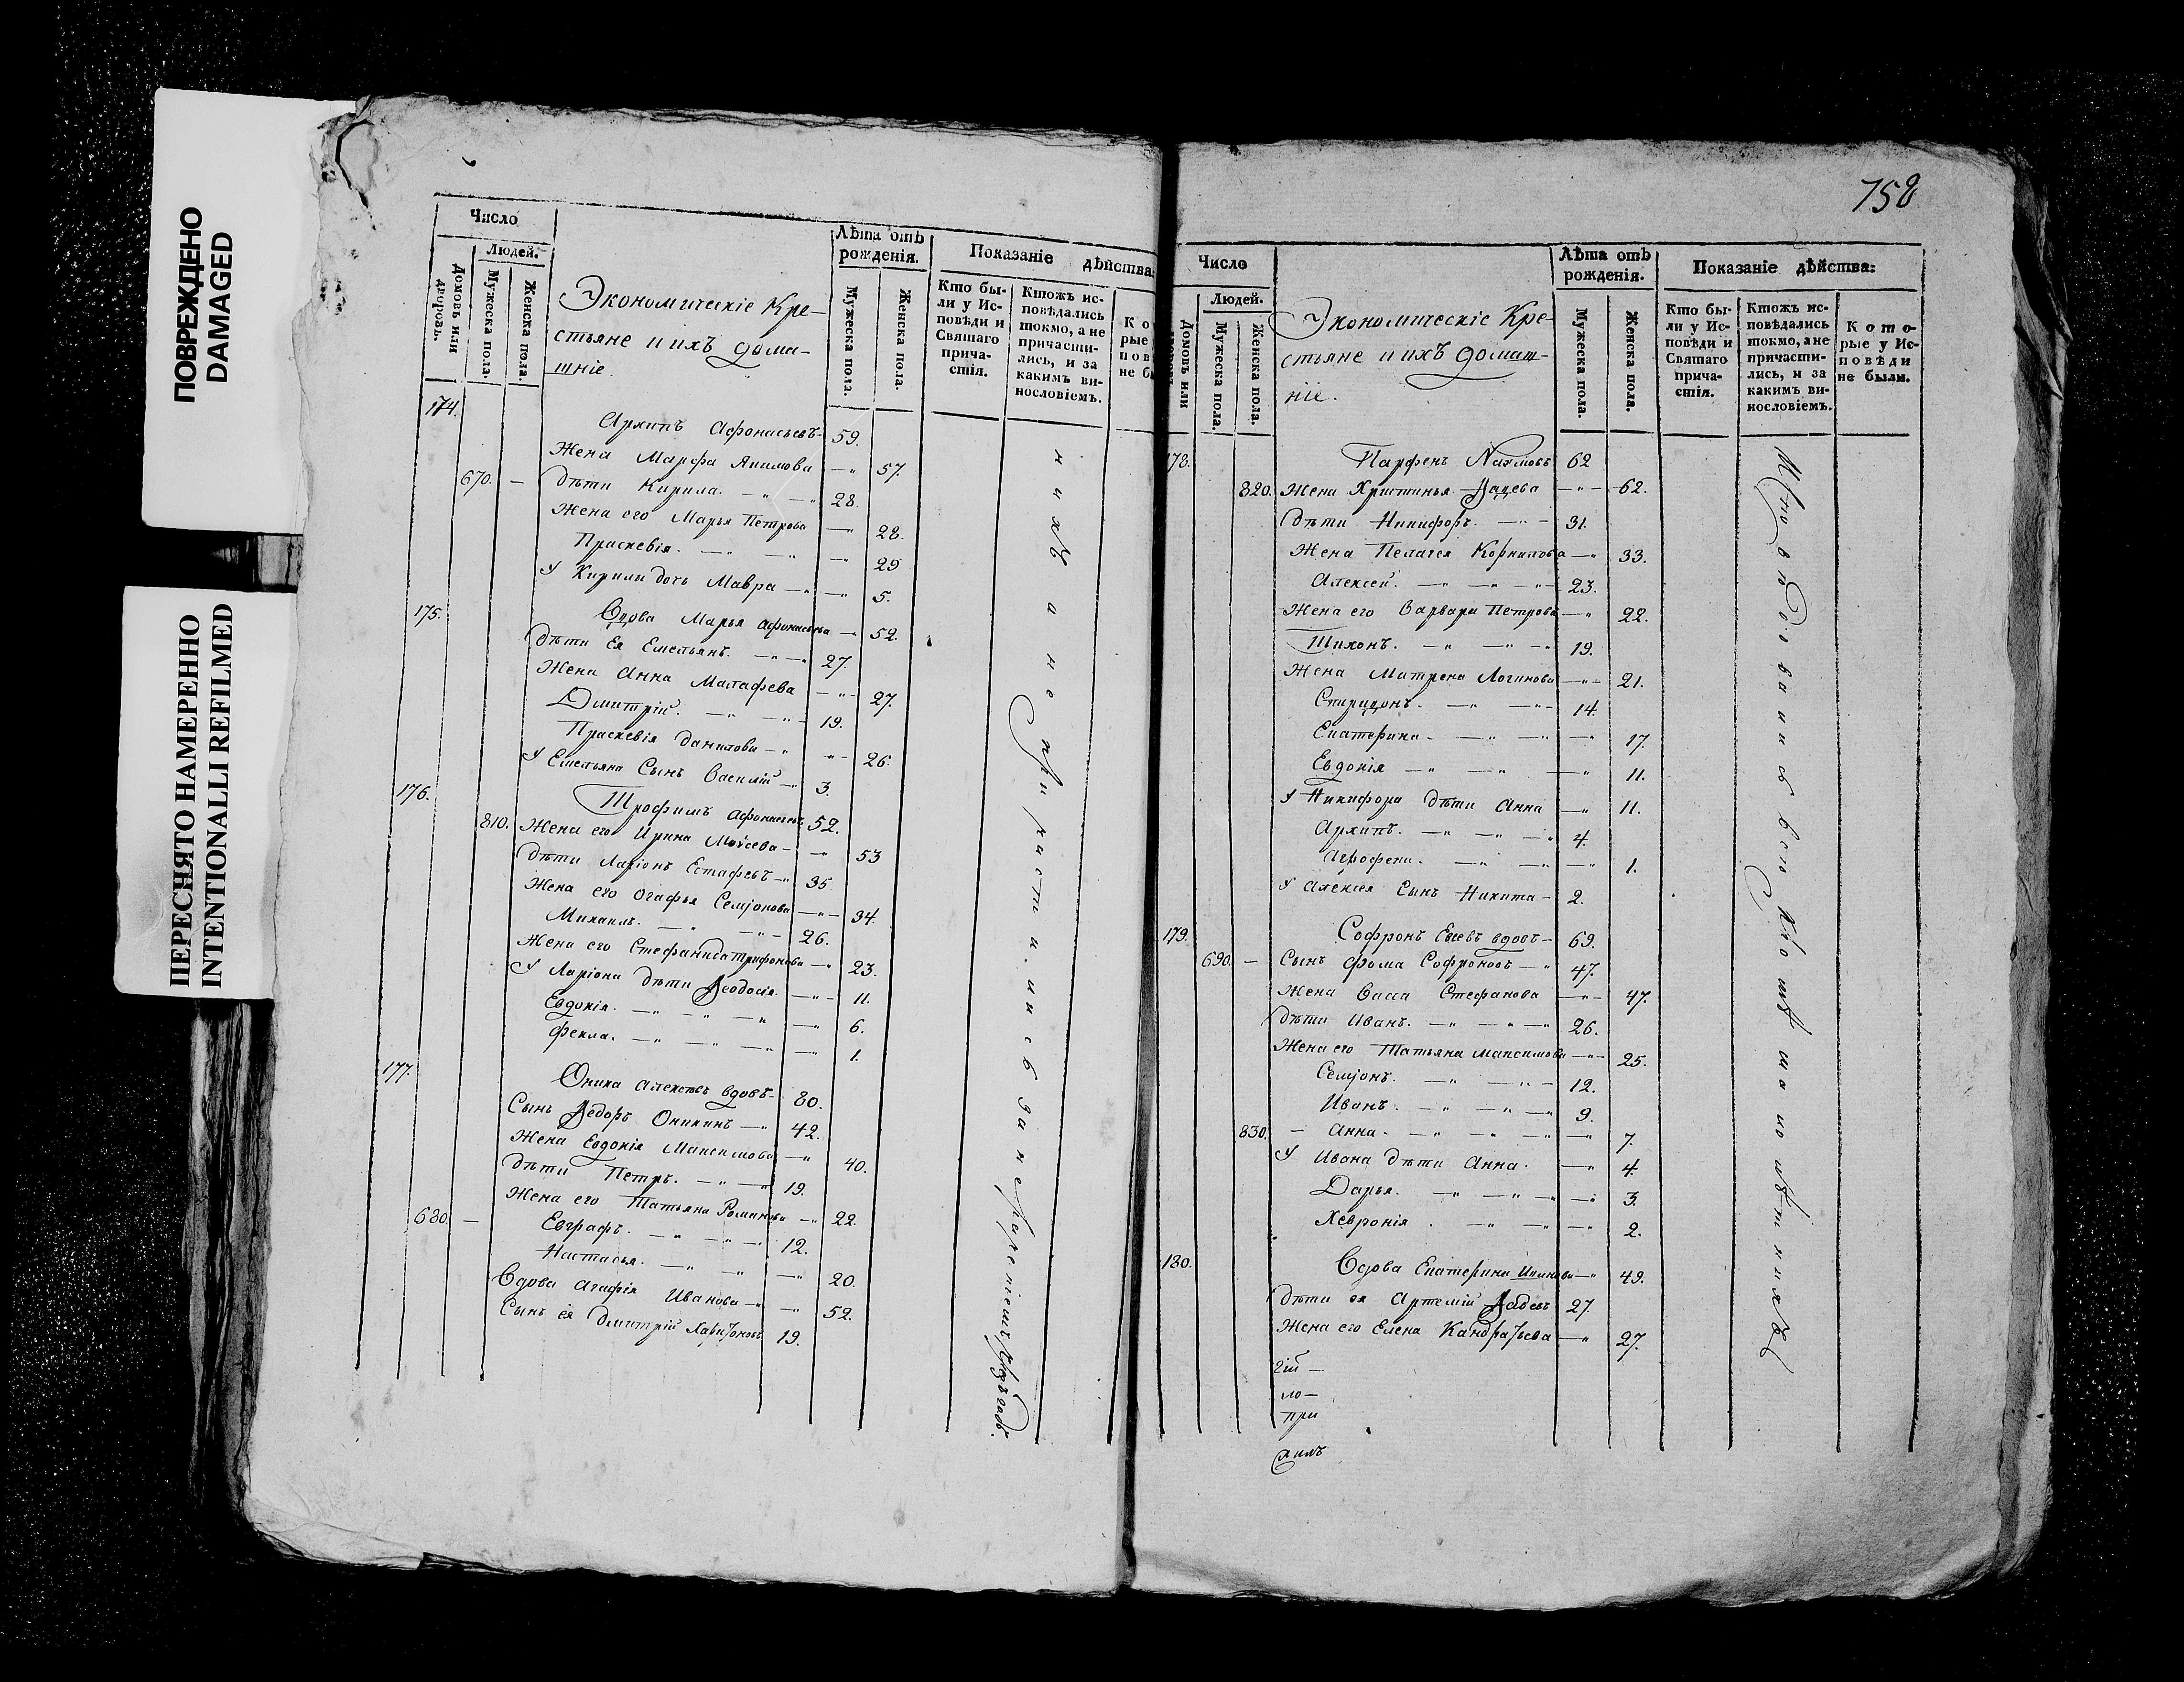 ПОВРЕЖДЕНО
DAMAGED
ПЕРЕСНЯТО НАМЕРЕННО
INTENTIONALLI REFILMED
Число
Людей.
Домовъ или дворовъ.
Мужеска пола.
Женска пола.
Экономическіе Кре-
стьяне и ихъ дома-
шніе.
Лѣта отъ рожденія.
Мужеска пола.
Женска пола.
Показаніе дѣйства:
Кто бы-
ли у Ис-
повѣди и
Святаго
прича-
стія.
Ктожъ ис-
повѣдались
токмо, а не
причасти-
лись, и за
какимъ ви-
нословіемъ.
К о
рые
п о в
не б
174. Архипъ Афонасьевъ 59.
Жена Марфа Якимова 57.
670. — дѣти Кирила. 28.
Жена его Марья Петрова 28.
Праскевія. 29
У Кирилы дочь Мавра 5.
175. Вдова Марья Афонасьева 52.
дѣти ея Емельянъ. 27.
Жена Анна Малафеева 27.
Дмитрій. 19.
Праскевія Данилова 26.
У Емельяна Сынъ Василій 3.
176. Трофимъ Афонасьевъ 52.
810. Жена его Ирина Моисева 53
дѣти Ларіонъ Естафевъ 35
Жена его Огафья Семіонова 34.
Михаилъ. 26.
Жена его Стефанида Трифонова 23.
У Ларіона дѣти Ѳеодосія. 11.
Евдокія. 6.
Фекла. 1.
177. Оника Алексевъ вдовъ 80.
Сынъ Ѳедоръ Оникинъ 42.
Жена Евдокія Максимова 40.
дѣти Петръ. 19.
Жена его Татьяна Романова 22.
680. — Евграфъ. 12.
Настасья. 20.
Вдова Агафія Иванова 52.
Сынъ ея Дмитрій Харитоновъ 19.
нихъ а не причастились за нерадѣніемъ
758
Число
Людей.
Домовъ или
Мужеска пола.
Женска пола.
Экономическіе Кре-
стьяне и ихъ домаш-
ніе.
Лѣта отъ рожденія.
Мужеска пола.
Женска пола.
Показаніе дѣйства:
Кто бы-
ли у Ис-
повѣди и
Святаго
прича-
стія.
Ктожъ ис-
повѣдались
токмо, а не
причасти-
лись, и за
какимъ ви-
нословіемъ.
К о т о-
рые у Ис-
п о в ѣ д и
не были.
178. Парфенъ Наумовъ 62
820. Жена Христинья Ѳадева 62.
дѣти Никифоръ. 31.
Жена Пелагея Корнилова 33.
Алексей. 23.
Жена его Варвара Петрова 22.
Тихонъ. 19.
Жена Матрена Логинова 21.
Спиридонъ. 14.
Екатерина. 17.
Евдокія 11.
У Никифора дѣти Анна 11.
Архипъ. 4.
Агрофена. 1.
У Алексея Сынъ Никита 2.
179. Софронъ Евсевъ вдовъ 69.
690. — Сынъ Фома Софроновъ 47.
Жена Васса Стефанова 47.
дѣти Иванъ. 26.
Жена его Татьяна Максимова 25.
Семіонъ. 12.
Иванъ. 9.
830. Анна. 7.
У Ивана дѣти Анна. 4.
Дарья. 3.
Хевронія. 2.
180. Вдова Екатерина 49.
дѣти ея Артемій Ѳадевъ 27
Жена его Елена Кандратьева 27.
гій —
ло —
при